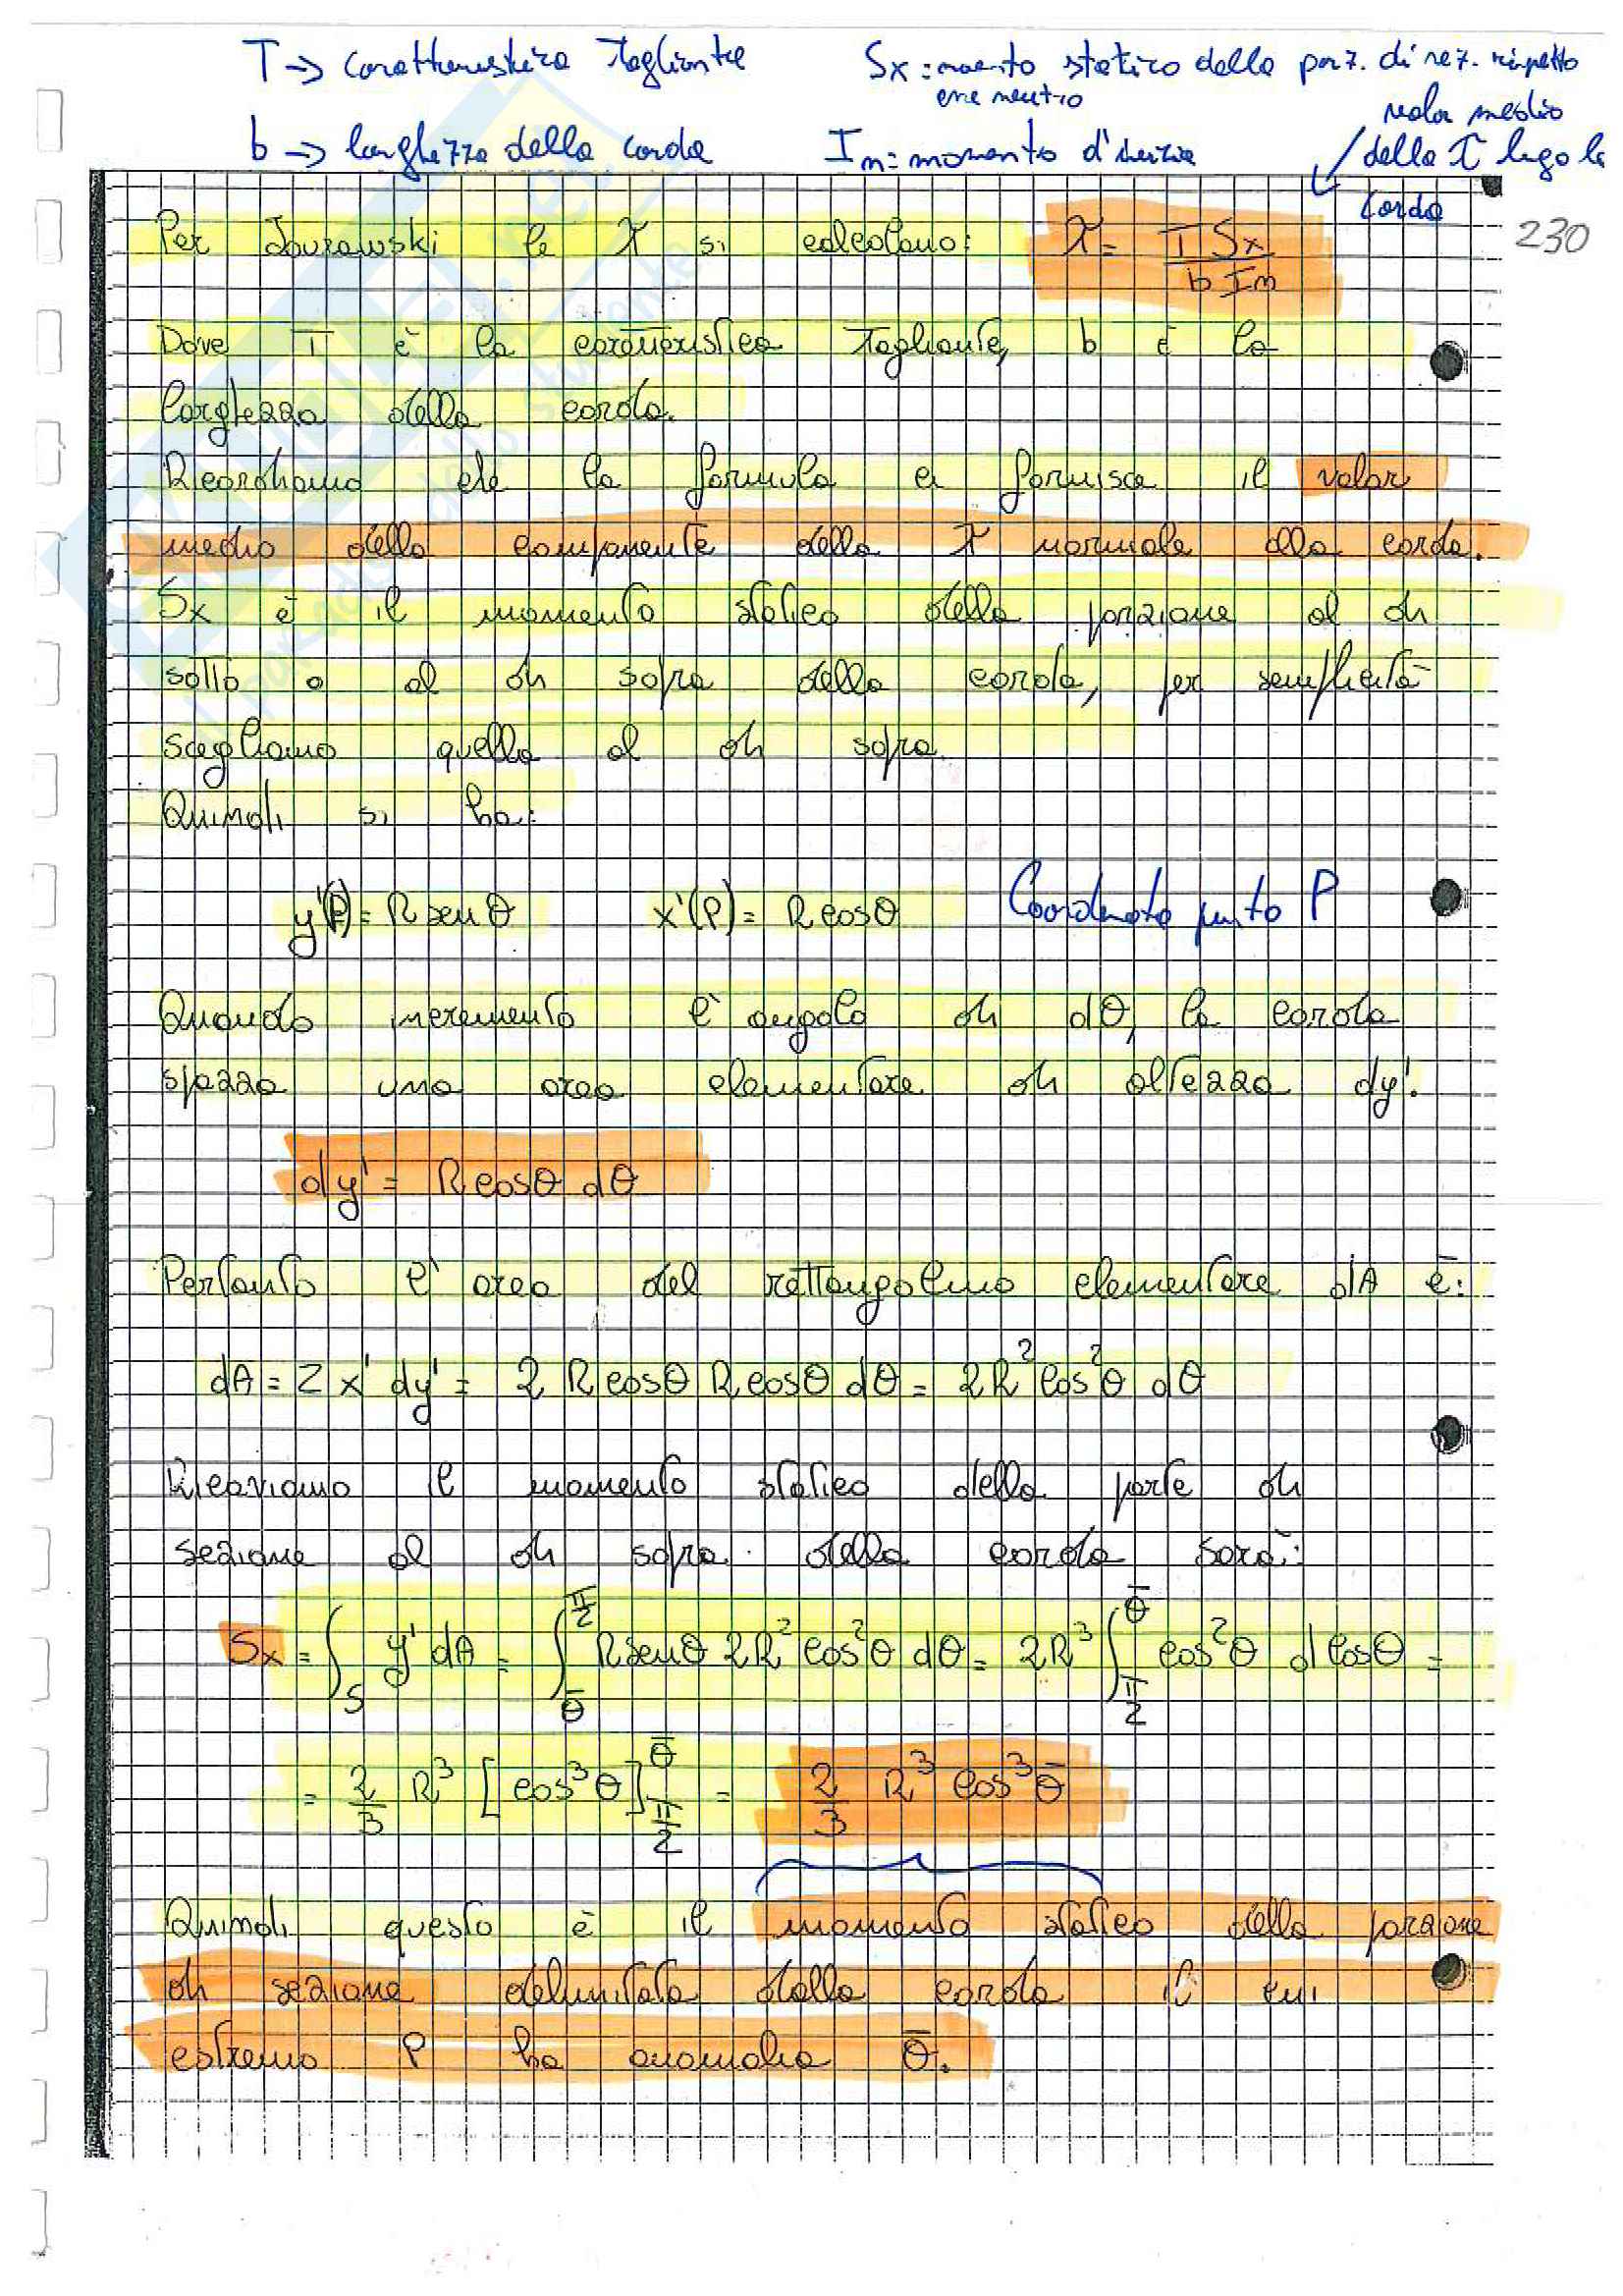 T → caratteristica Tagliante
Sx = momento statico della porz. di sez. rispetto
asse neutro
b → larghezza della corda
In = momento d'inerzia
valor medio
della τ lungo la
corda
230
Per Jourawski le τ si calcolano: τ = T Sx / b In
Dove T è la caratteristica Tagliante, b è la
larghezza della corda.
Ricordiamo che la formula ci fornisce il valor
medio della componente della τ normale alla corda.
Sx è il momento statico della porzione al di
sotto o al di sopra della corda, per semplicità
scegliamo quella al di sopra.
Quindi si ha:
y'(P) = R senθ x'(P) = R cosθ Coordinate punto P
Quando incremento l'angolo di dθ, la corda
spazza una area elementare di altezza dy'.
dy' = R cosθ dθ
Pertanto l'area del rettangolino elementare dA è:
dA = 2 x' dy' = 2 R cosθ R cosθ dθ = 2R² cos²θ dθ
Ricaviamo il momento statico della parte di
sezione al di sopra della corda sarà:
Sx = ∫_S y' dA = ∫_θ̄^(π/2) R senθ 2R² cos²θ dθ = 2R³ ∫_(π/2)^θ̄ cos²θ d cosθ =
= 2/3 R³ [cos³θ]_(π/2)^θ̄ = 2/3 R³ cos³θ̄
Quindi questo è il momento statico della porzione
di sezione delimitata dalla corda il cui
estremo P ha anomalia θ̄.